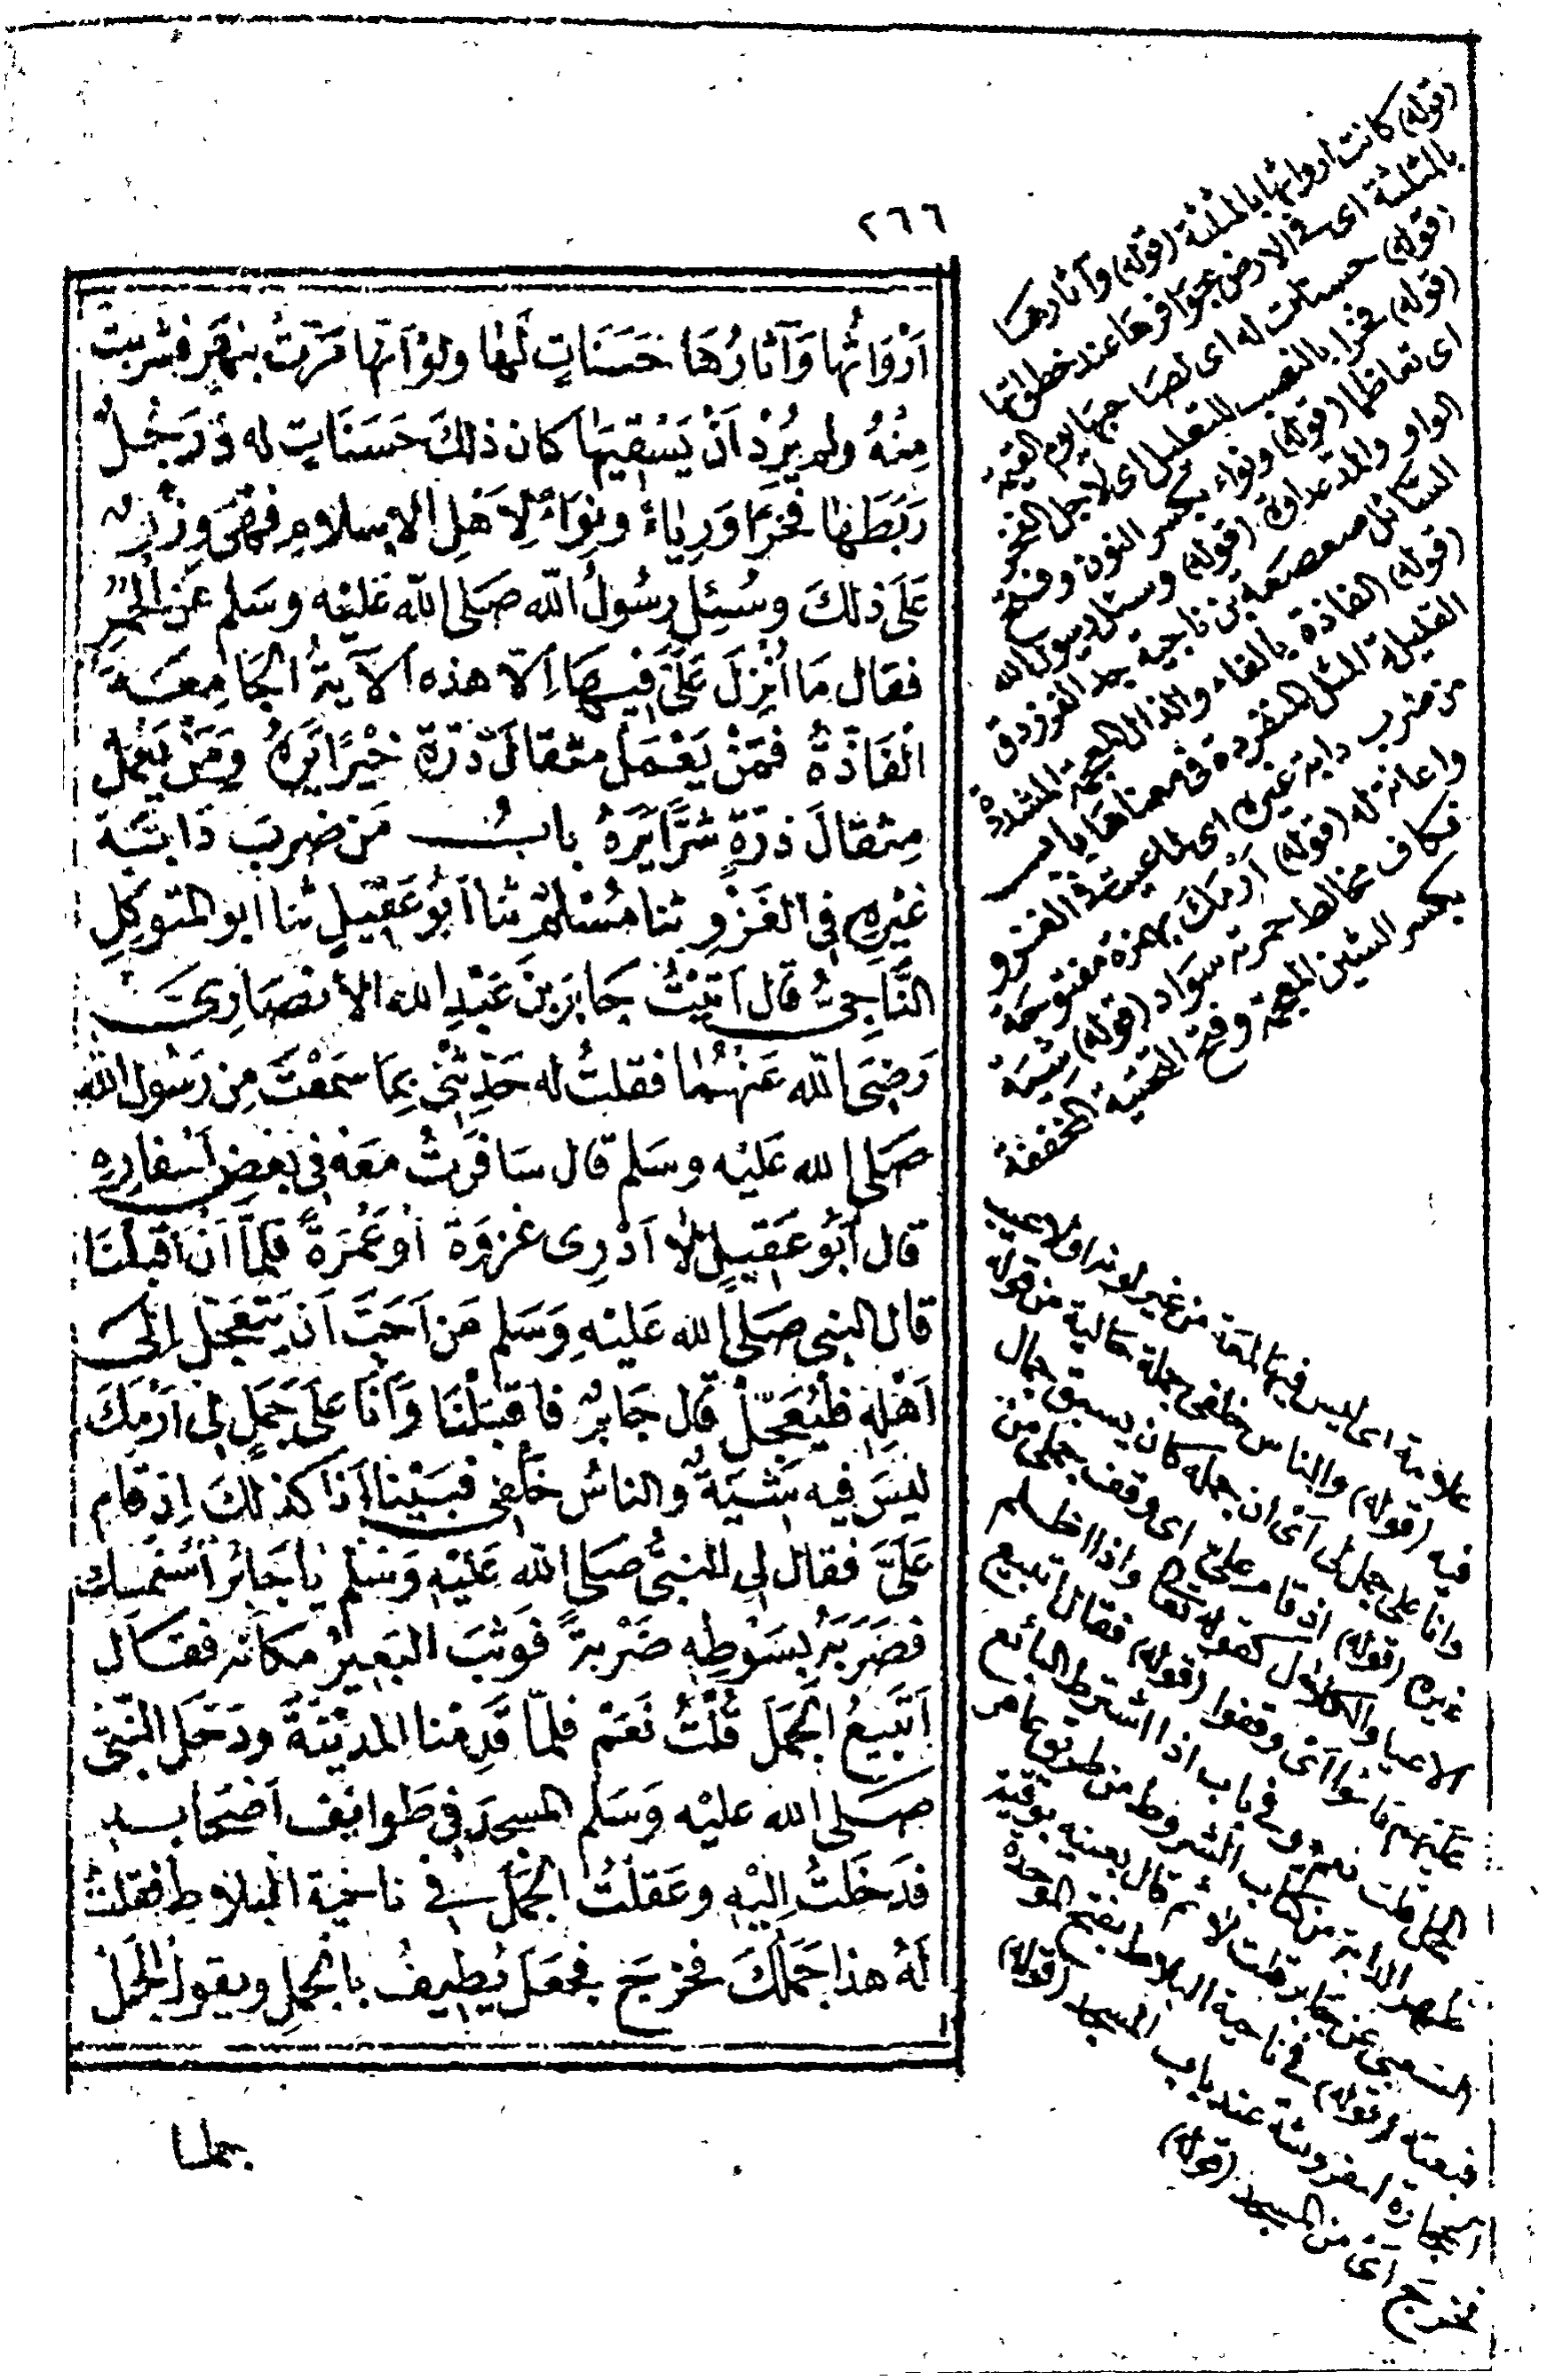 ٢٦٦
اَرْوَاثُها وَآثارُهَا حَسَنَاتٍ لَهٰا ولوْاَنّها مَرّتْ بنهَرٍ فشربَتْ
مِنْهُ ولم يُرِدْ اَنْ يَسْقِيَهٰا كان ذلكَ حَسَنَاتٍ له وَرَجُلٌ
رَبَطَهٰا فخرًا وَرِيٰاءً ونِوَاءً لِاَهْلِ الاِسلامِ فهْىَ وِزْرٌ
عَلَى ذلكَ وسُئِلَ رسُولُ اللّه صَلى اللّه عَليْه وسَلم عَنِ الْحُمُرِ
فقال مَا اُنْزِلَ عَلَىَّ فيهَا اِلّا هذه الآيةُ الجَامِعَةُ
الْفَاذّةُ فمَنْ يَعْمَل مثقالَ ذرّةٍ خيْرًا يَرَهُ وَمَنْ يَعْمَلْ
مِثقالَ ذرّةٍ شرًّا يَرَهُ بابُ مَن ضربَ دَابّةَ
غيْرِهِ في الغَزْوِ ثنا مُسْلمٌ ثنا اَبُو عَقيلٍ ثنا ابو المتوكِلِ
النّاجىُّ قال اَتيْتُ جَابِرَ بْنَ عَبْدِ الله الاَنصَارِىَّ
رَضِىَ اللّه عَنهُمٰا فقلتُ له حَدِّثْنِى بِمَا سَمعْتَ مِن رَسُولِ الله
صَلى الله عَليْه وسَلم قال سَافَرْتُ معَهُ فِى بَعْضِ اَسْفارِهِ
قال اَبُو عَقِيلٍ لا اَدْرِى غزوَةً اَوْ عُمْرَةً فلمّا اَنْ اَقبَلْنَا
قال النبى صَلى الله عَليْهِ وَسَلم مَن اَحَبَّ اَن يَتَعَجّلَ اِلَى
اَهْلِهِ فليُعَجِّلْ قال جَابِرٌ فاقبَلْنَا وَاَنَا عَلَى جَمَلٍ لِى اَرْمَكَ
ليْسَ فيه شِيَةٌ والناسُ خَلْفِى فبَيْنا اَنَا كَذلكَ اِذ قام
عَلَىَّ فقال لِى النبىُّ صَلى الله عَليْهِ وَسَلم يا جَابِرُ اسْتَمْسِك
فضرَبَهُ بِسَوْطِهِ ضَرْبةً فوَثبَ البَعِيرُ مكانَه فقال
اَتَبيعُ الجَمَلَ قُلْتُ نَعَمْ فلمّا قَدِمْنا المدينَةَ ودَخَلَ النّبىُّ
صَلى الله عليْه وَسَلم المسجدَ فى طَوائِفِ اَصْحَابِهِ
فدَخَلتُ اِليْهِ وعَقلْتُ الجَمَلَ فى ناحيَةِ البَلاطِ فقلتُ
لَهُ هذا جَمَلُكَ فخرَجَ فجعَلَ يُطِيفُ بالجملِ ويقولُ الجمَلُ
جملنا
(قوله) كانت ارواثها بالمثلثة (قوله) وآثارها
بالمثلثة اى فى الارض بحوافرها عند خطواتها
(قوله) حسنات له اى لصاحبها يوم القيمة
(قوله) فخرا بالنصب للتعليل اى لاجل الفخر
اى تعاظما (قوله) ونواء بكسر النون وفتح
الواو والمد عداوة (قوله) وسئل رسول الله
السائل صعصعة بن ناجية جد الفرزدق
(قوله) الفاذة بالفاء والذال المعجمة المشددة
القليلة المثل المنفردة فى معناها باب
من ضرب دابة غيره اى فى الغزو
واعانة له (قوله) اَرْمَكَ بهمزة مفتوحة
فكاف يخالط حمرته سواد (قوله) شِيَة
بكسر الشين المعجمة وفتح التحتية المخففة
علامة اى ليس فيها لمعة من غير لونه او لا عيب
فيه (قوله) والناس خلفى جملة حالية من قوله
وانا على جمل لى اى ان جمله كان يسبق جمال
غيره (قوله) اذ قام على اى وقف جملى من
الاعياء والكلال كقوله تعالى واذا اظلم
عليهم قاموا اى وقفوا (قوله) فقال اتبيع
الجمل قلت نعم وفى باب اذا اشترط البائع
ظهر الدابة من كتاب الشروط من طريق عامر
الشعبى عن جابر قلت لا ثم قال بعنيه بوقية
فبعته (قوله) فى ناحية البلاط بفتح الموحدة
الحجارة المفروشة عند باب المسجد (قوله)
فخرج اى من المسجد (قوله)